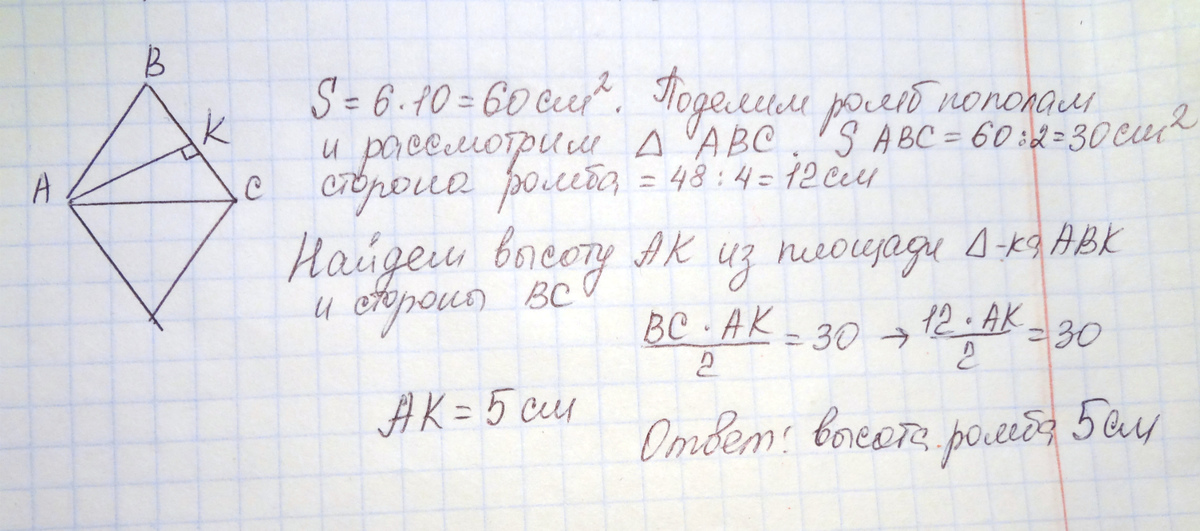 B
K
A
C
S = 6·10 = 60 см². Поделим ромб пополам
и рассмотрим Δ ABC. S ABC = 60:2=30 см²
сторона ромба = 48:4=12 см
Найдем высоту AK из площади Δ-ка ABK
и стороны BC
BC·AK/2 = 30 → 12·AK/2 = 30
AK = 5 см
Ответ: высота ромба 5 см